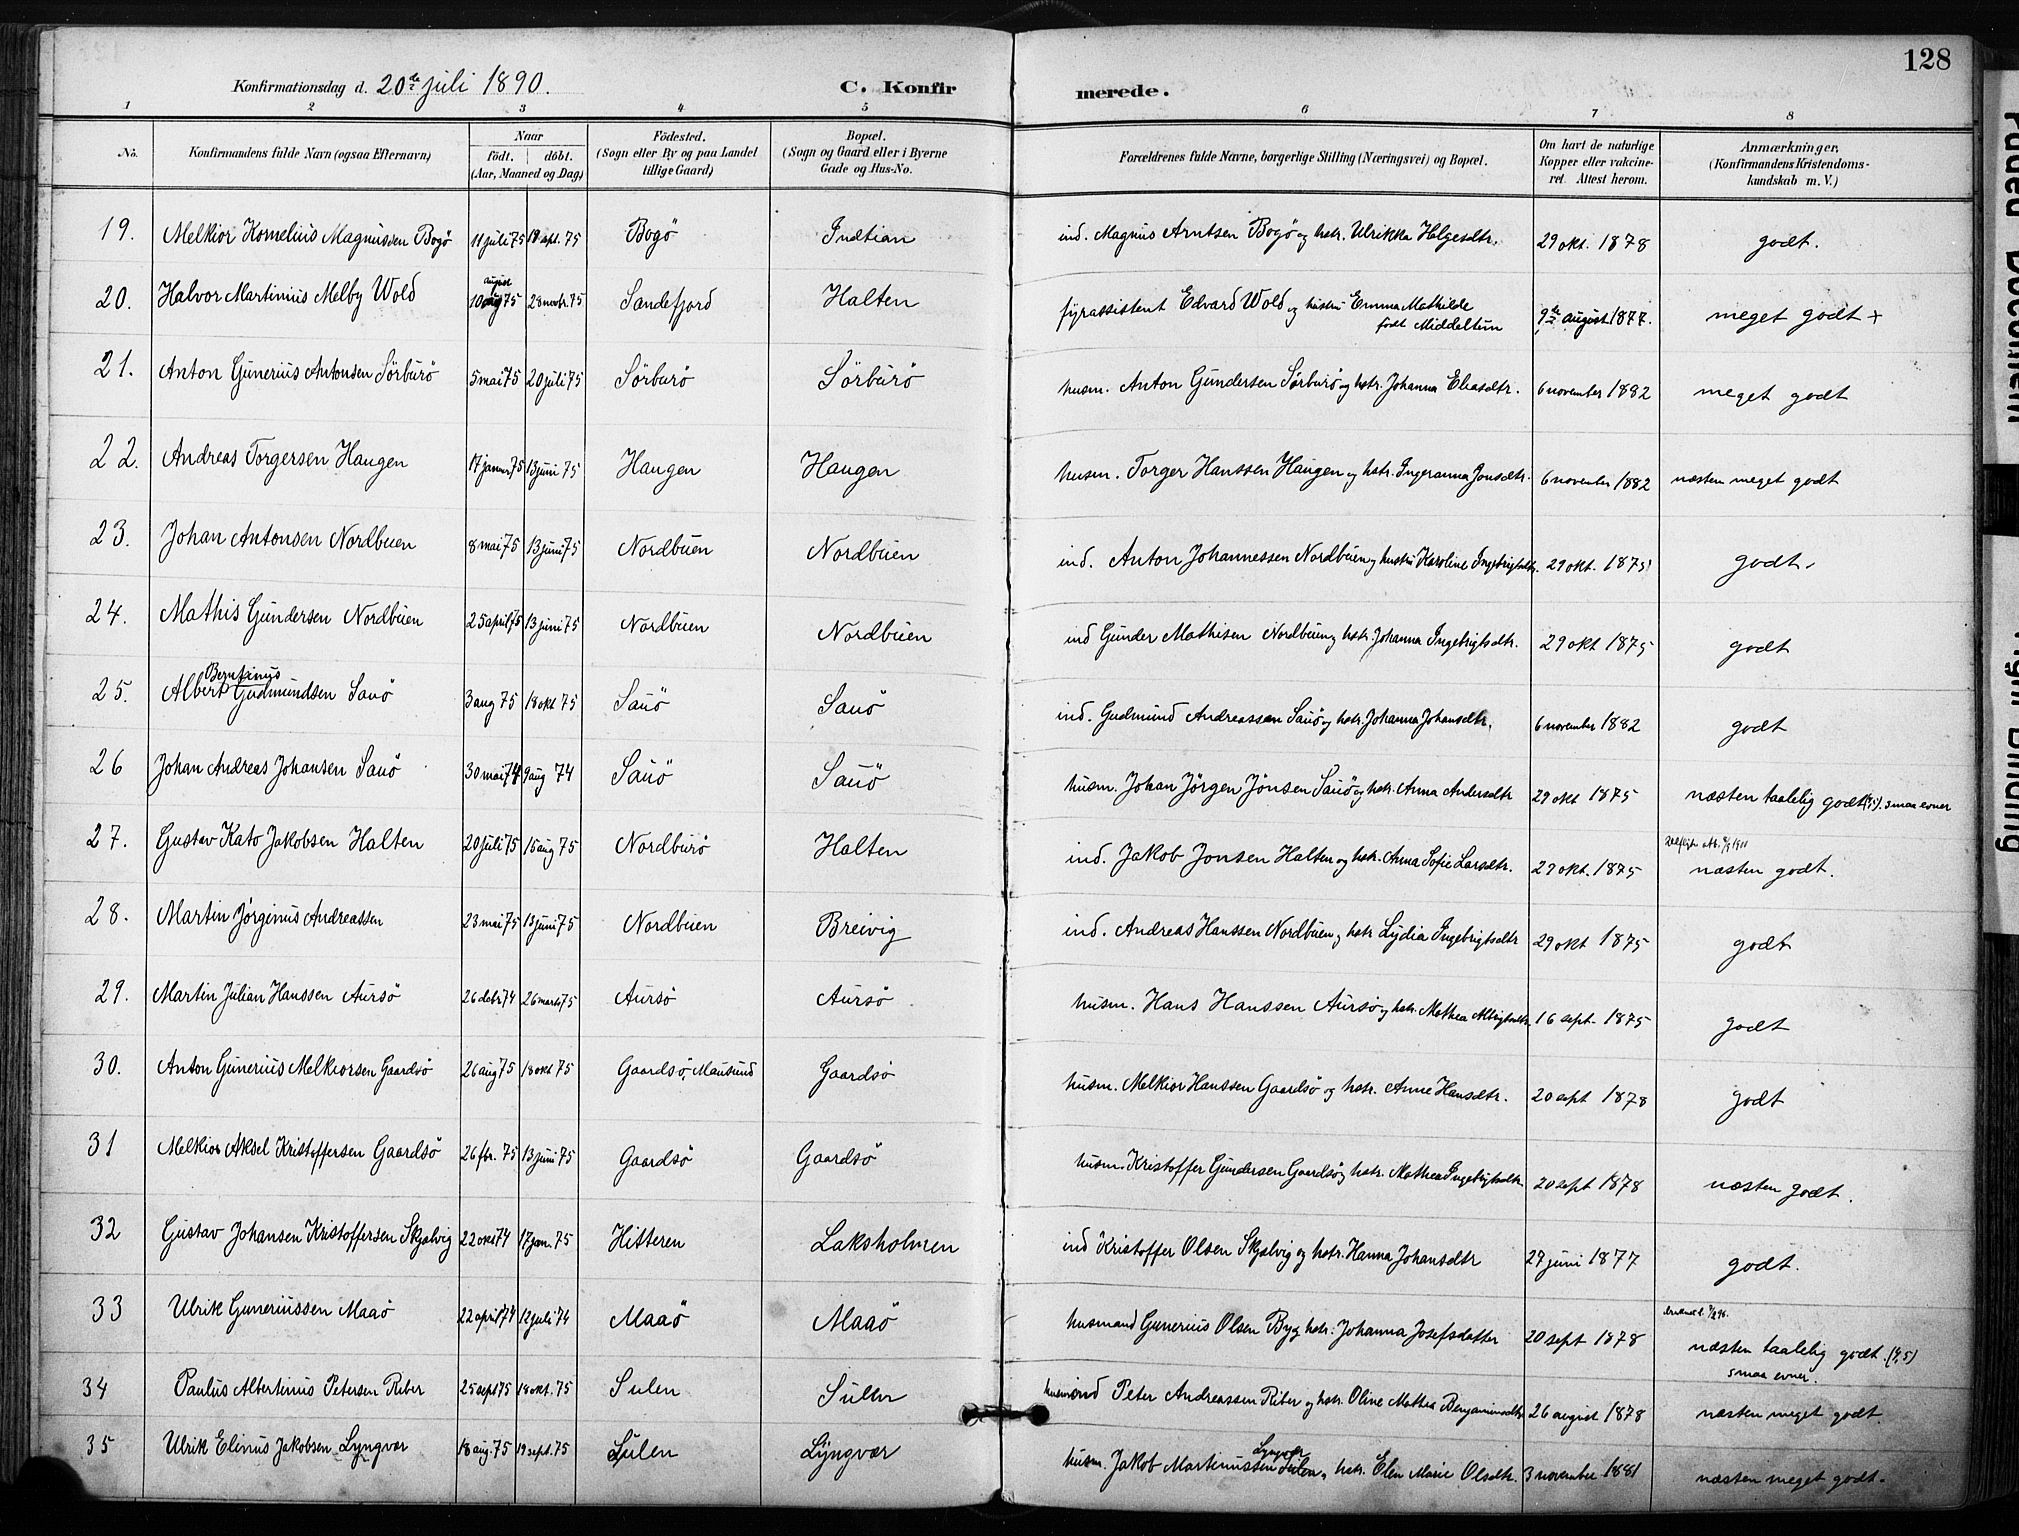 128
Konfirmationsdag d. 20de juli 1890. C. Konfirmerede.
1 2 3 4 5 6 7 8
No. Konfirmandens fulde Navn (ogsaa Efternavn) Naar født. døbt. (Aar, Maaned og Dag) Fødested. (Sogn eller By og paa Landet tillige Gaard) Bopæl. (Sogn og Gaard eller i Byerne Gade og Hus-No. Forældrenes fulde Navne, borgerlige Stilling (Næringsvei) og Bopæl. Om havt de naturlige Kopper eller vakcineret. Attest herom. Anmærkninger, (Konfirmandens Kristendomskundskab m. V.)
19. Melkior Kornelius Magnussen Bogö 11 juli 75 19 spt. 75 Bogö Indtian ind. Magnus Arntsen Bogö og hstr. Ulrikka Helgesdtr. 29 okt. 1878 godt.
20. Halvor Martinius Melby Wold 10 august 75 28 novbr. 75 Sandefjord Halten fyrassistent Edvard Wold og hustru Emma Mathilde født Middeltun 9de august 1877. meget godt +
21. Anton Gunerius Antonsen Sörburö 5 mai 75 20 juli 75 Sörburö Sörburö husm. Anton Gundersen Sörburö og hstr. Johanna Eliasdtr. 6 november 1892 meget godt
22. Andreas Torgersen Haugen 17 januar 75 13 juni 75 Haugen Haugen husm. Torger Hanssen Haugen og hstr. Ingeranna Jonsdtr. 6 november 1882 næsten meget godt
23. Johan Antonsen Nordbuen 8 mai 75 13 juni 75 Nordbuen Nordbuen ind. Anton Johannessen Nordbuen og hustru Karoline Ingebrigtsdtr. 29 okt. 1875 godt.
24. Mathis Gundersen Nordbuen 25 april 75 13 juni 75 Nordbuen Nordbuen ind Gunder Mathisen Nordbuen og hstr. Johanna Ingebrigtsdtr. 29 okt 1875 godt
25. Albert Berntinus Gudmundsen Sauö 3 aug 75 18 okt 75 Sauö Sauö ind. Gudmund Andreassen Sauö og hstr. Johanna Johansdtr. 6 november 1882 godt
26 Johan Andreas Johansen Sauö 30 mai 74 9 aug 74 Sauö Sauö husm. Johan Jörgen Jönsen Sauö og hstr. Anna Andersdtr 29 okt 1875 næsten taalelig godt (4,5). smaa evner
27. Gustav Kato Jakobsen Halten 20 juli 75 15 aug 75 Nordburö Halten ind. Jakob Jonsen Halten og hstr. Anna Sofie Larsdtr. 29 okt. 1875 næsten godt.
28. Martin Jörginus Andreassen 23 mai 75 13 juni 75 Nordbuen Breivig ind. Andreas Hanssen Nordbuen og hstr Lydia Ingebrigtsdtr 29 okt 1875 godt
29. Martin Julian Hanssen Aursö 26 debr 74 26 marts 75 Aursö Aursö husm. Hans Hanssen Aursö og hstr. Mathea Albrigtsdtr. 16 sept. 1875 godt
30. Anton Gunerius Melkiorsen Gaardsö 26 aug 75 18 okt 75 Gaardsö, Mausund Gaardsö husm. Melkior Hanssen Gaardsö og hstr. Anne Hansdtr. 20 sept 1878 godt
31 Melkior Aksel Kristoffersen Gaardsö 26 fbr. 75 13 juni 75 Gaardsö Gaardsö husm. Kristoffer Gundersen Gaardsö og hstr. Mathea Ingebrigtsdtr. 20 sept 1878 næsten godt.
32 Gustav Johansen Kristoffersen Skjælvig 22 okt 74 17 jan. 75 Hitteren Laksholmen ind Kristoffer Olsen Skjælvig og hstr. Hanna Johansdtr 27 juni 1877 godt.
33 Ulrik Guneriussen Maaö 22 april 74 12 juli 74 Maaö Maaö husmand Gunerius Olsen By og hstr. Johanna Josefsdatter 20 sept 1878 næsten taalelig godt. (4,5) smaa evner.
34 Paulus Albertinus Petersen Riber 25 sept 75 18 okt. 75 Sulen Sulen husmand Peter Andreassen Riber og hstr. Oline Mathea Benjaminsdtr 26 august 1878 næsten meget godt.
35 Ulrik Elinus Jakobsen Lyngvær 18 aug. 75 19 sept. 75 Sulen Lyngvær husm. Jakob Martinussen Lyngvær og hstr. Elen Marie Olsdtr. 3 november 1881 næsten meget godt.